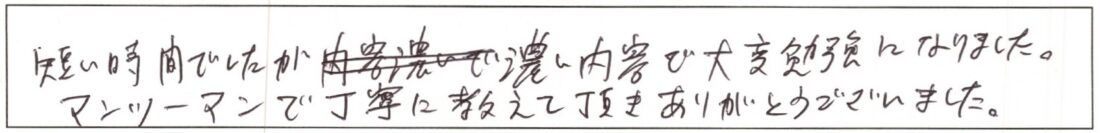 短い時間でしたが内容濃いで濃い内容で大変勉強になりました。
マンツーマンで丁寧に教えて頂きありがとうございました。